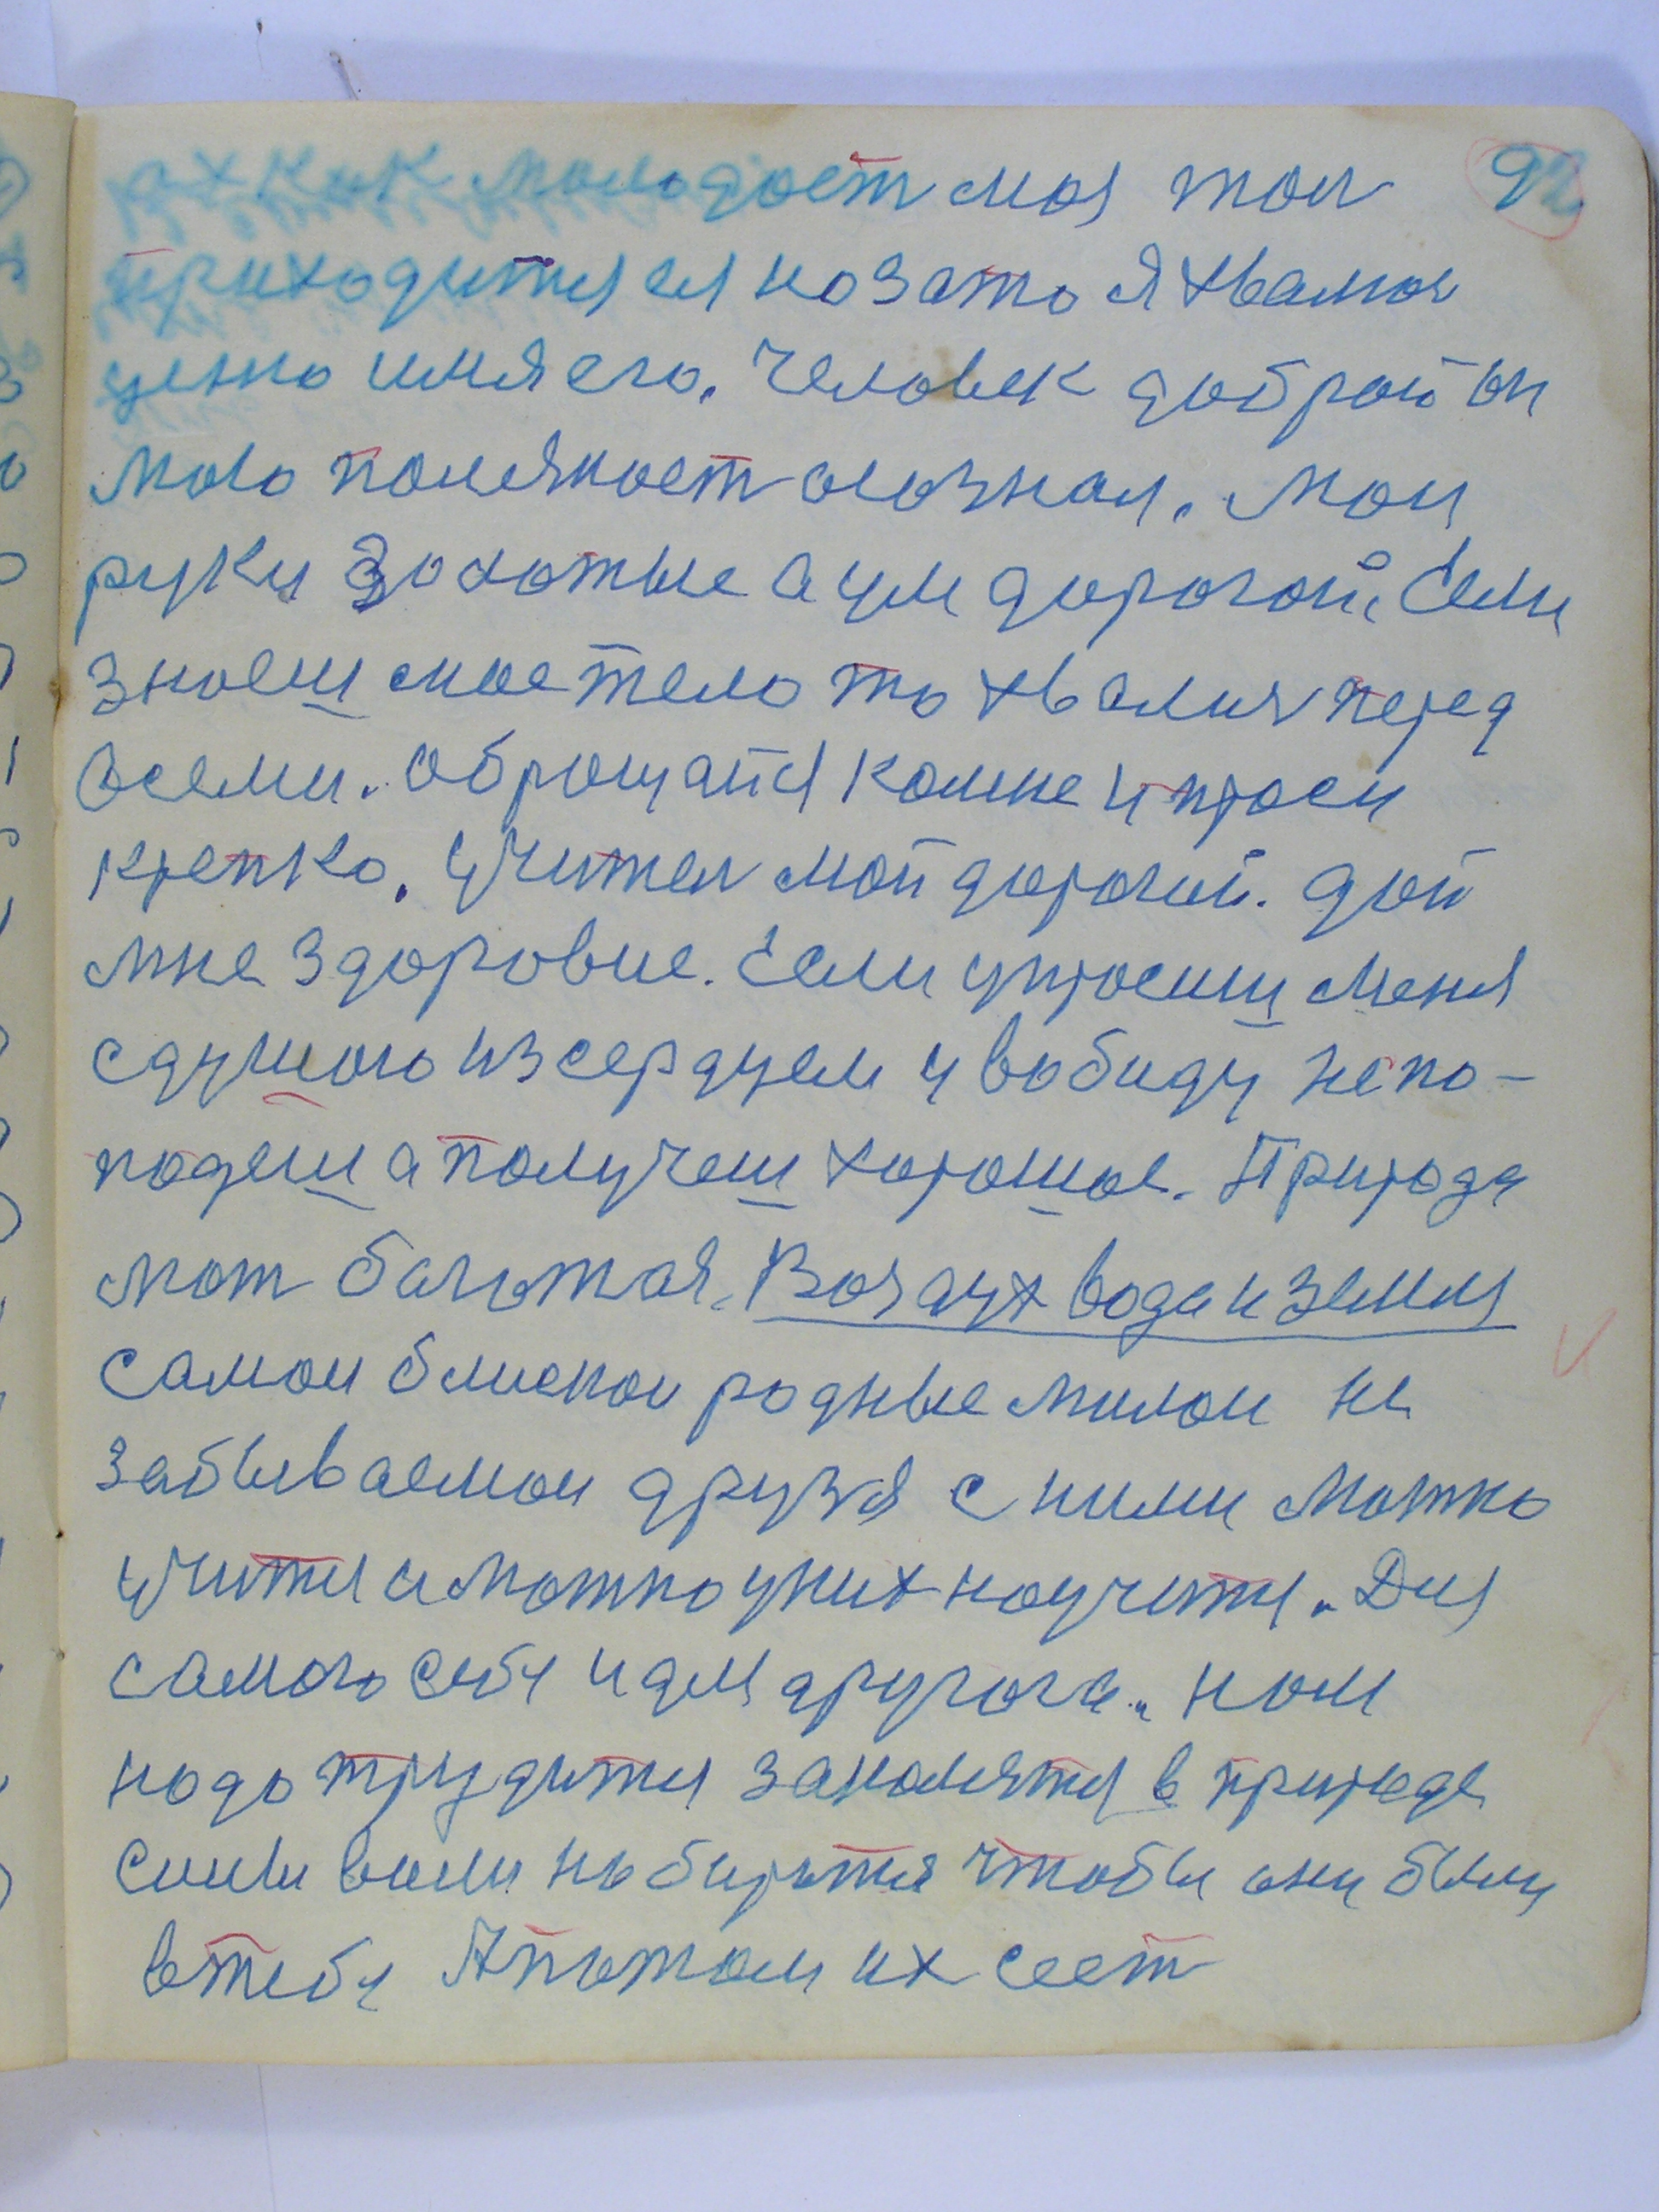 как молодост моя тои 92
приходится ея но зато я хвалюс
ценю имя его. Человек доброй он
мою полезност осознал. Мои
руки золотые а ум дорогой. Если
знаеш мое тело то хвалис перед
всеми. Оброщайся комне и проси
крепко. Учител мой дорогий. дай
мне здоровие. Если упросиш меня
сдушою из сердцем у вобиду непо-
подеш а получеш хорошое. Природа
мат багатая. Воздух вода и земля
самои блискои родные милои не
забываемои друзя с ними можно
учится и можно уних научится. Для
самого себе и для другога. нам
надо трудится заниматся в природе
силы воли набиратся чтобы они были
втебе А потом их сеет